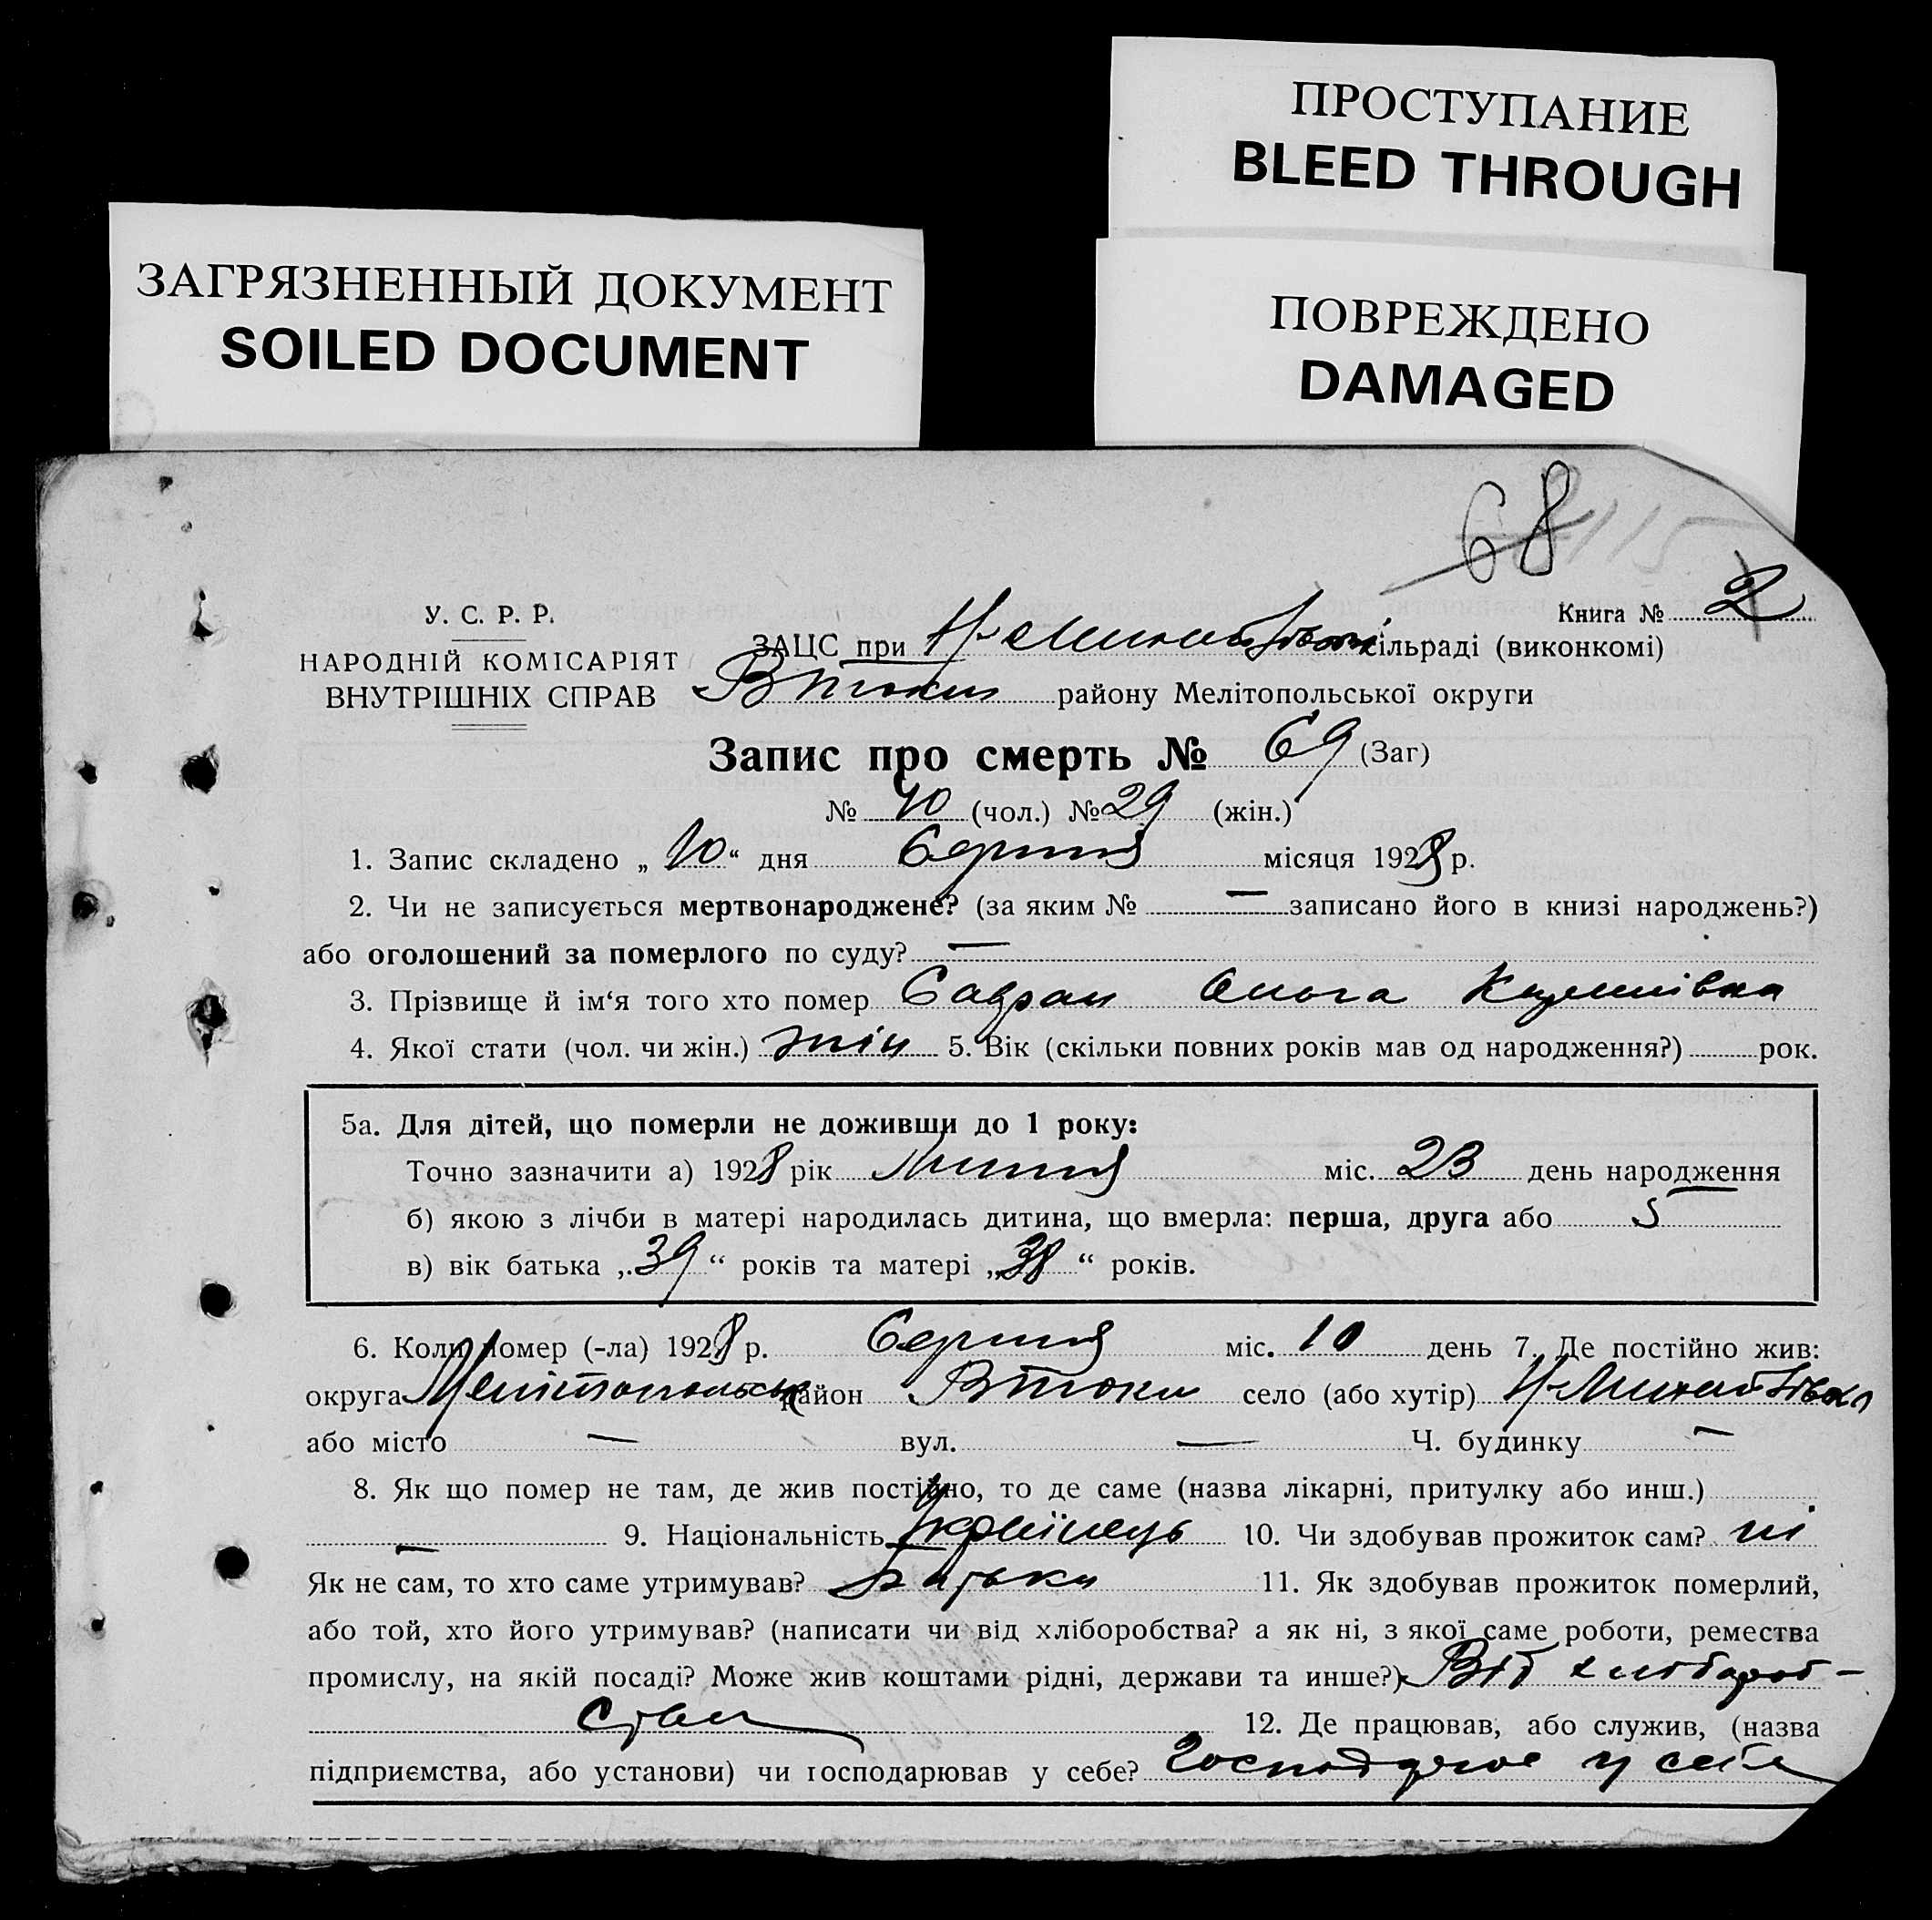 ПРОСТУПАНИЕ
BLEED THROUGH
ЗАГРЯЗНЕННЫЙ ДОКУМЕНТ
SOILED DOCUMENT
ПОВРЕЖДЕНО
DAMAGED
68 115
У. С. Р. Р.
НАРОДНІЙ КОМІСАРІЯТ
ВНУТРІШНІХ СПРАВ
Книга № 2
ЗАЦС при Н-Михайлівськ сільраді (виконкомі)
району Мелітопольської округи
Запис про смерть № 69 (Заг)
№ 40 (чол.) № 29 (жін.)
1. Запис складено „ 10 “ дня Серпня місяця 1928 р.
2. Чи не записується мертвонароджене? (за яким № — записано його в книзі народжень?)
або оголошений за померлого по суду? —
3. Прізвище й ім‘я того хто помер
4. Якої стати (чол. чи жін.) жін 5. Вік (скільки повних років мав од народження?) рок.
5а. Для дітей, що померли не доживши до 1 року:
Точно зазначити а) 1928 рік Липня міс. 23 день народження
б) якою з лічби в матері народилась дитина, що вмерла: перша, друга або 5
в) вік батька „ 39 “ років та матері „ 38 “ років.
6. Коли помер (-ла) 1928 р. Серпня міс. 10 день 7. Де постійно жив:
округа Мелітопольськ район село (або хутір) Н-Михайлівка
або місто — вул. — Ч. будинку —
8. Як що помер не там, де жив постійно, то де саме (назва лікарні, притулку або инш.)
— 9. Національність Українець 10. Чи здобував прожиток сам? ні
Як не сам, то хто саме утримував? Батьки 11. Як здобував прожиток померлий,
або той, хто його утримував? (написати чи від хліборобства? а як ні, з якої саме роботи, ремества
промислу, на якій посаді? Може жив коштами рідні, держави та инше?) Від хлібороб-
ства 12. Де працював, або служив, (назва
підприємства, або установи) чи господарював у себе? у себе